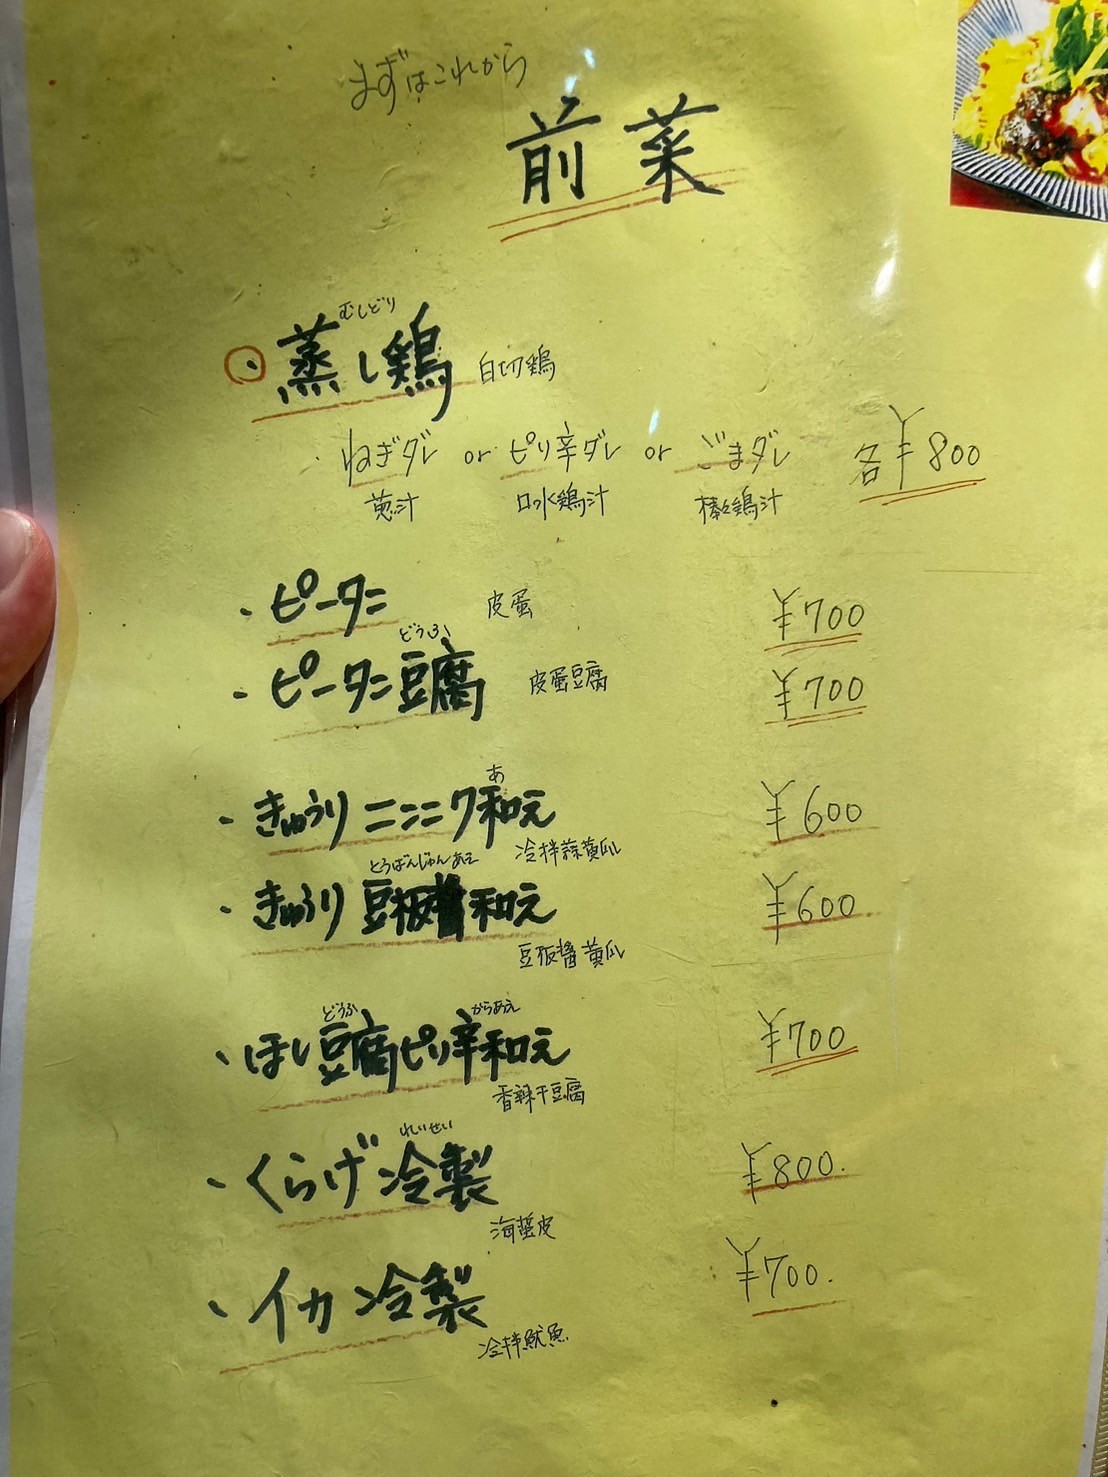 まずはこれから
前菜
むしどり
・蒸し鶏 白切鶏
・ねぎダレ or ピリ辛ダレ or ごまダレ 各¥800
葱汁 口水鶏汁 棒々鶏汁
・ピータン 皮蛋 ¥700
どうふ
・ピータン豆腐 皮蛋豆腐 ¥700
あ
・きゅうりニンニク和え ¥600
冷拌蒜黄瓜
とうばんじゃんあえ
・きゅうり豆板醤和え ¥600
豆板醤黄瓜
どうふ からあえ
・ほし豆腐ピリ辛和え ¥700
香辣干豆腐
れいせい
・くらげ冷製 ¥800.
海蜇皮
・イカ冷製 ¥700.
冷拌魷魚